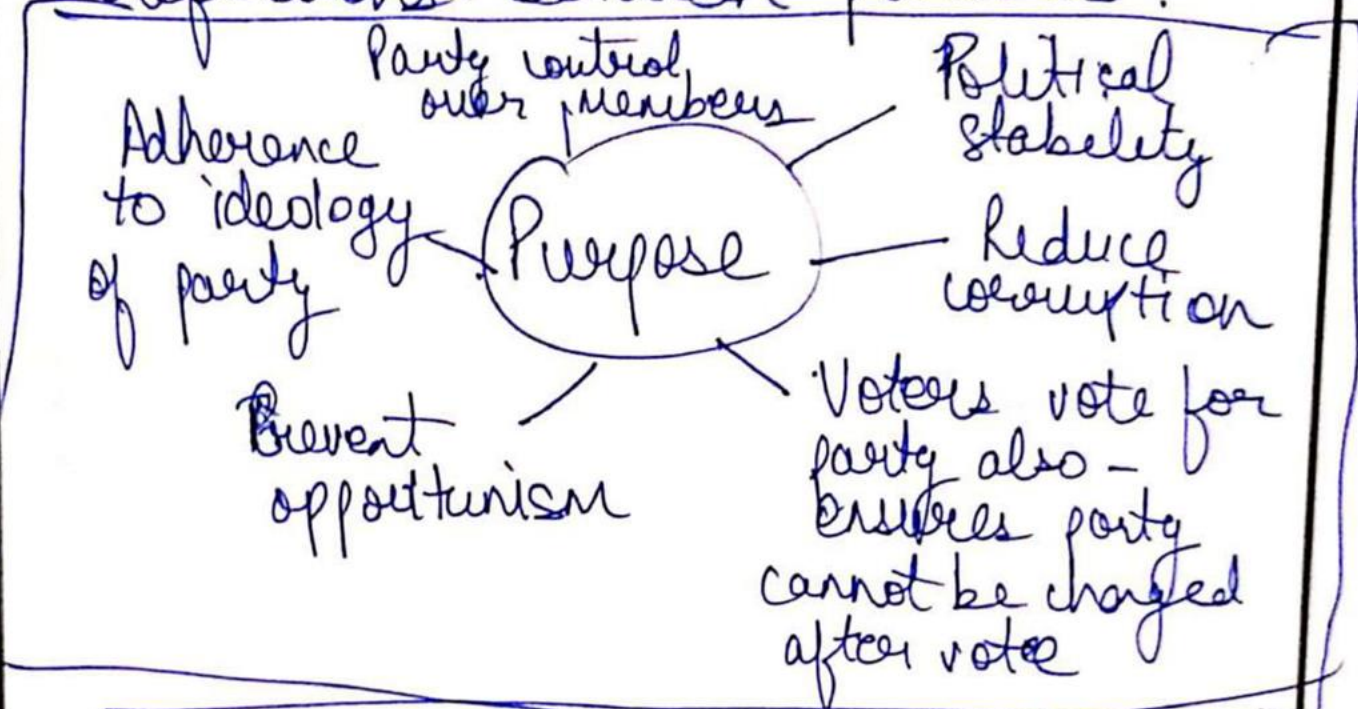 Party control
over members
Political
stability
Adherence
to ideology
of party
Purpose
Reduce
corruption
Prevent
opportunism
Voters vote for
party also –
ensures party
cannot be changed
after vote